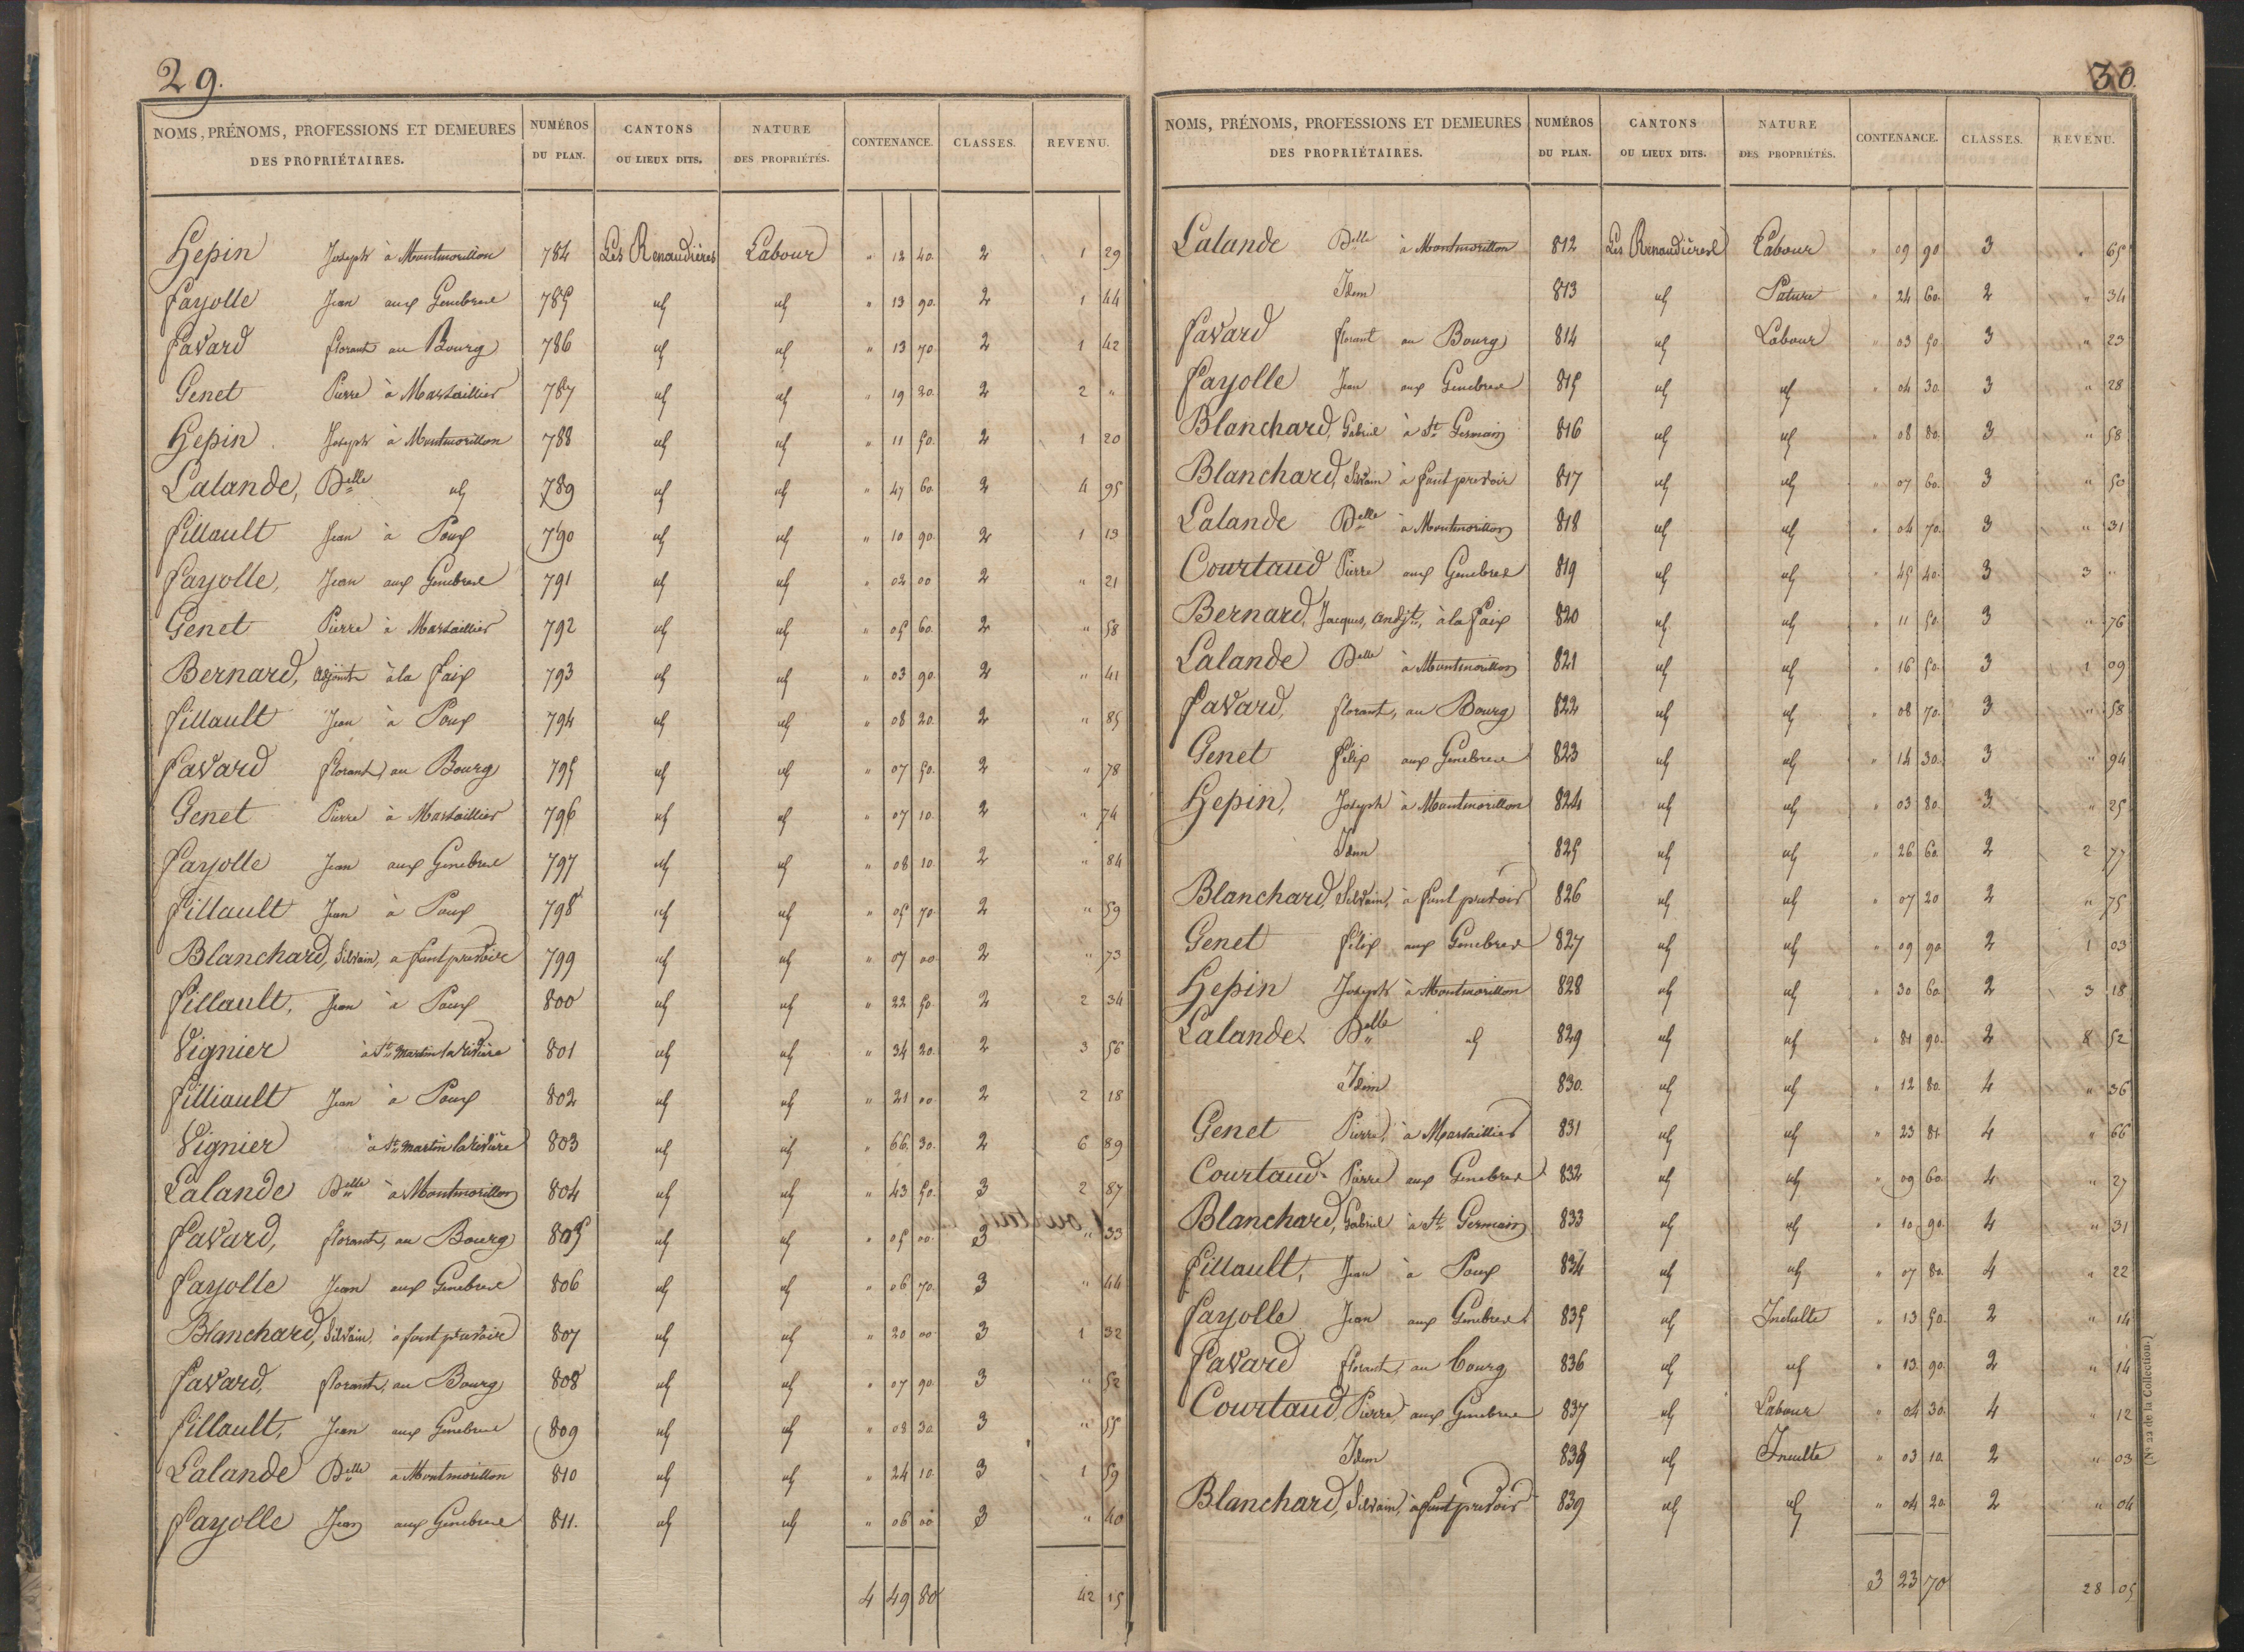 29.
NOMS, PRÉNOMS, PROFESSIONS ET DEMEURES DES PROPRIÉTAIRES. NUMÉROS DU PLAN. CANTONS OU LIEUX DITS. NATURE DES PROPRIÉTÉS. CONTENANCE. CLASSES. REVENU.
Hepin Joseph à Montmorillon 784 Les Renaudières Labour " 12 40 2 1 29
Fayolle Jean aux Genebrex 785 id id " 13 90 2 1 44
Favard florant au Bourg 786 id id " 13 70 2 1 42
Genet Pierre à Martaillier 787 id id " 19 30 2 2 "
Hepin Joseph à Montmorillon 788 id id " 11 50 2 1 20
Lalande, Delle id 789 id id " 47 60 2 4 95
Fillault Jean à Poux 790 id id " 10 90 2 1 13
Fayolle, Jean aux Genebrex 791 id id " 02 00 2 " 21
Genet Pierre à Martaillier 792 id id " 05 60 2 " 58
Bernard, adjoint à la faix 793 id id " 03 90 2 " 41
Fillault Jean à Poux 794 id id " 08 20 2 " 85
Favard florant, au Bourg 795 id id " 07 50 2 " 78
Genet Pierre à Martaillier 796 id id " 07 10 2 " 74
Fayolle Jean aux Genebrex 797 id id " 08 10 2 " 84
Fillault Jean à Poux 798 id id " 05 70 2 " 59
Blanchard, Silvain, a font prevoire 799 id id " 07 00 2 " 73
Fillault, Jean à Poux 800 id id " 22 50 2 2 34
Vignier à St Martin la rivière 801 id id " 34 20 2 3 56
Filliault Jean à Poux 802 id id " 21 00 2 2 18
Vignier à St Martin la rivière 803 id id " 66 30 2 6 89
Lalande Delle à Montmorillon 804 id id " 43 50 3 2 87
Favard, florant, au Bourg 805 id id " 05 00 3 " 33
Fayolle Jean aux Genebrex 806 id id " 06 70 3 " 44
Blanchard, Silvain, à font prevoire 807 id id " 20 00 3 1 32
Favard, florant, au Bourg 808 id id " 07 90 3 " 52
Fillault, Jean aux Genebrex 809 id id " 08 30 3 " 55
Lalande Delle à Montmorillon 810 id id " 24 10 3 1 59
Fayolle Jean aux Genebrex 811. id id " 06 00 3 " 40
4 49 80 42 15
30.
NOMS, PRÉNOMS, PROFESSIONS ET DEMEURES DES PROPRIÉTAIRES. NUMÉROS DU PLAN. CANTONS OU LIEUX DITS. NATURE DES PROPRIÉTÉS. CONTENANCE. CLASSES. REVENU.
Lalande Delle à Montmorillon 812 Les Renaudières Labour " 09 90 3 " 65
Idem 813 id Pature " 24 60 2 " 34
Favard florant au Bourg 814 id Labour " 03 50 3 " 23
Fayolle Jean aux Genebrex 815 id id " 04 30 3 " 28
Blanchard, Gabriel à St Germain 816 id id " 08 80 3 " 58
Blanchard, Silvain à font prevoir 817 id id " 07 60 3 " 50
Lalande Delle à Montmorillon 818 id id " 04 70 3 " 31
Courtaud Pierre aux Genebrex 819 id id " 45 40 3 3 "
Bernard, Jacques, andjt, à la faix 820 id id " 11 50 3 " 76
Lalande Delle à Montmorillon 821 id id " 16 50 3 1 09
Favard, florant, au Bourg 822 id id " 08 70 3 " 58
Genet félix aux Genebrex 823 id id " 14 30 3 " 94
Hepin, Joseph à Montmorillon 824 id id " 03 80 3 " 25
Idem 825 id id " 26 60 2 2 77
Blanchard, Silvain, à font prevoir 826 id id " 07 20 2 " 75
Genet félix aux Genebrex 827 id id " 09 90 2 1 03
Hepin Joseph à Montmorillon 828 id id " 30 60 2 3 18
Lalande Delle id 829 id id " 81 90 2 8 52
Idem 830. id id " 12 80 4 " 36
Genet Pierre, à Martaillier 831 id id " 23 81 4 " 66
Courtaud Pierre aux Genebrex 832 id id " 09 60 4 " 27
Blanchard, Gabriel à St Germain 833 id id " 10 90 4 " 31
Fillault, Jean à Poux 834 id id " 07 80 4 " 22
Fayolle Jean aux Genebrex 835 id Inculte " 13 50 2 " 14
Favard florant, au bourg 836 id id " 13 90 2 " 14
Courtaud, Pierre, aux Genebrex 837 id Labour " 04 30 4 " 12
Idem 838 id Inculte " 03 10 2 " 03
Blanchard, Silvain, à font prevoir 839 id id " 04 20 2 " 04
3 23 70 28 05
(No 22 de la Collection.)